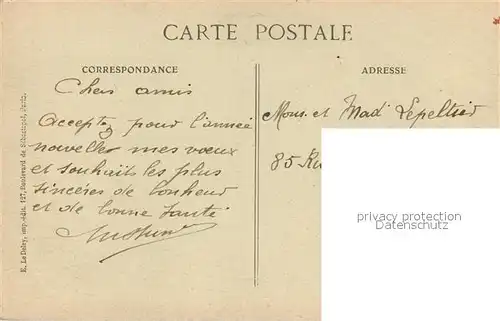 CARTE POSTALE
CORRESPONDANCE
Chers amis
Acceptez pour l'année
nouvelle mes vœux
et souhaits les plus
sincères de bonheur
et de bonne santé
ADRESSE
Mons. et Mad. Lepeltier
85 Ru
privacy protection
Datenschutz
E. Le Deley, imp.-édit. 127, Boulevard de Sébastopol, Paris.